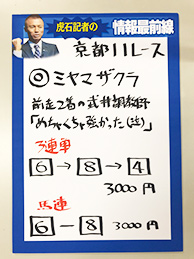 虎石記者の
情報最前線
京都11レース
◎ミヤマザクラ
前走2着の武井調教師
「めちゃくちゃ強かった(辻)」
3連単
6→8→4
3000円
馬連
6-8 3000円